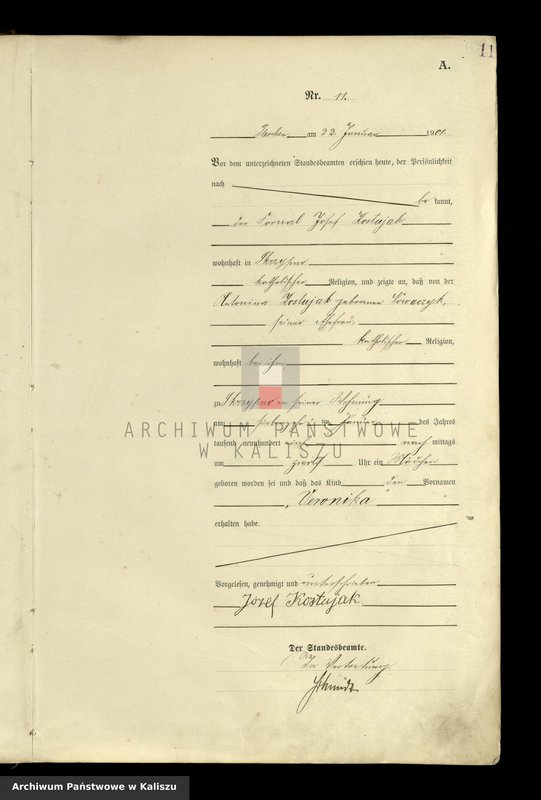 11
A.
Nr. 11.
am 22. Januar 1901.
Vor dem unterzeichneten Standesbeamten erschien heute, der Persönlichkeit
nach
be kannt,
der Fornal Josef Kostujak
wohnhaft in Skrzypno
katholischer Religion, und zeigte an, daß von der
Antonina Kostujak geborenen Nowaczyk,
seiner Ehefrau,
katholischer Religion,
wohnhaft bei ihm
zu Skrzypno in seiner Wohnung
am Januar des Jahres
tausend neunhundert eins nach mittags
um zwölf Uhr ein Mädchen
geboren worden sei und daß das Kind den Vornamen
„Veronika"
erhalten habe.
Vorgelesen, genehmigt und unterschrieben
Józef Kostujak
Der Standesbeamte.
In Vertretung
Schmidt
ARCHIWUM PAŃSTWOWE
W KALISZU
Archiwum Państwowe w Kaliszu